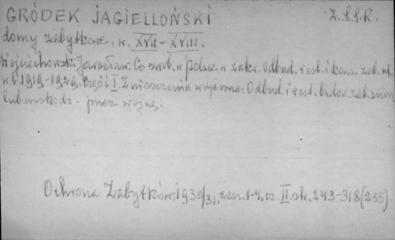 GRÓDEK JAGIELLOŃSKI Z.S.S.R.
domy zabytkowe, w. XVII-XVIII.
Wojciechowski, Jarosław. Co zrob. w Polsce w zakr. Odbud. rest. i kons. zab. 
w l. 1919-1929. Część I. Zniszczenia wojenne. Odbud. i rest. budow. zab. zniszcz.
lub uszkodz. przez wojnę.
Ochrona Zabytków, 1930/31, zesz. 1-4, cz. II. str. 243-318 (255).